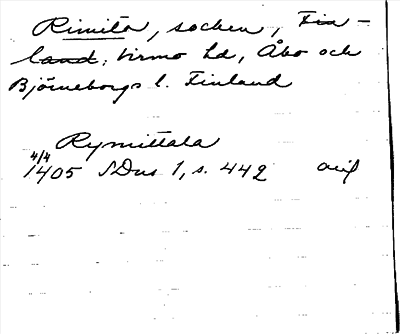 Rimito, socken, Fin-
land; Virmo hd, Åbo och
Björneborgs l. Finland
Rymittala
4/4
1405 SDns 1, s. 442 avif